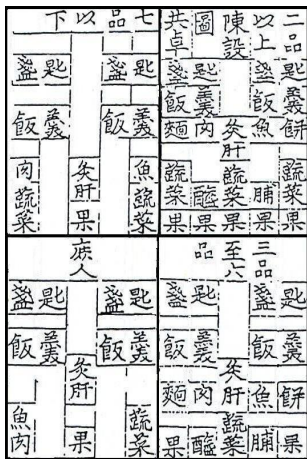 二品以上陳設圖共卓
盞匙 盞匙
飯羹 飯羹
麵肉炙肝魚餠
蔬菜 醢 蔬菜 脯 蔬菜
果果果果果
七品以下
盞匙 盞匙
飯羹 飯羹
肉 炙肝 魚
蔬菜 果 蔬菜
三品至六品
盞匙 盞匙
飯羹 飯羹
麵肉炙肝魚餠
果醢蔬菜脯果
庶人
盞匙 盞匙
飯羹 飯羹
炙肝
魚肉 果 蔬菜